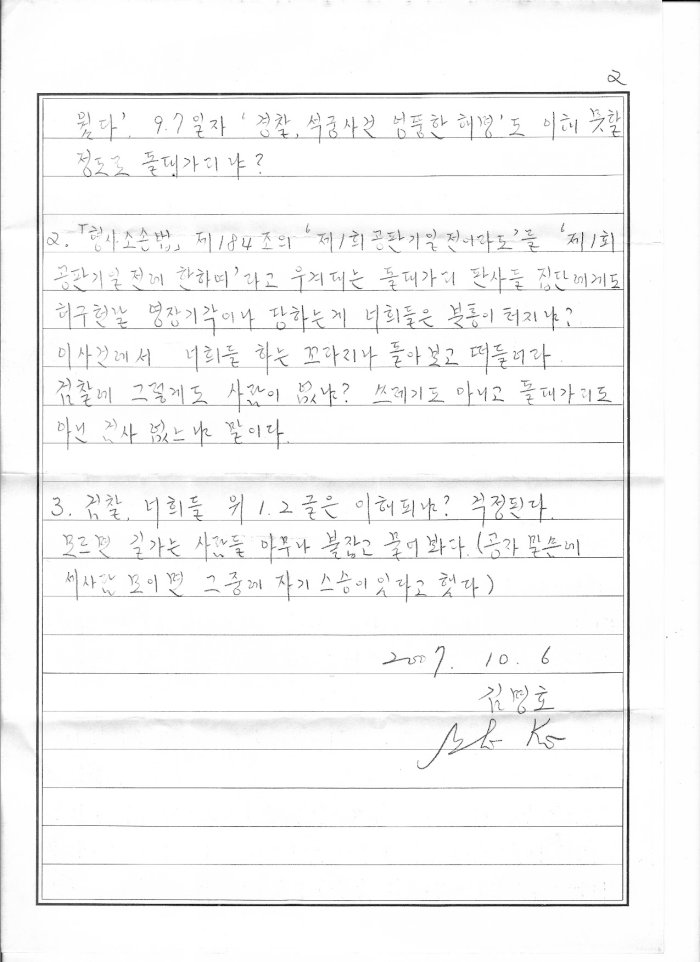 2
웠다'. 9.7일자 '경찰, 석궁사건 엉뚱한 해명'도 이해 못할
정도로 돌대가리냐?
2. 「형사소송법」 제184조의 '제1회 공판기일 전이라도'를 '제1회
공판기일 전에 한하며'라고 우겨대는 돌대가리 판사들 집단에게도
허구헌날 영장기각이나 당하는게 너희들은 분통이 터지냐?
이사건에서 너희들 하는 꼬라지나 돌아보고 떠들어라
검찰에 그렇게도 사람이 없냐? 쓰레기도 아니고 돌대가리도
아닌 검사 없느냐 말이다.
3. 검찰, 너희들 위 1.2 글은 이해되냐? 걱정된다.
모르면 길가는 사람들 아무나 붙잡고 물어봐다. (공자 말씀에
세사람 모이면 그 중에 자기 스승이 있다고 했다)
2007. 10. 6
김명호